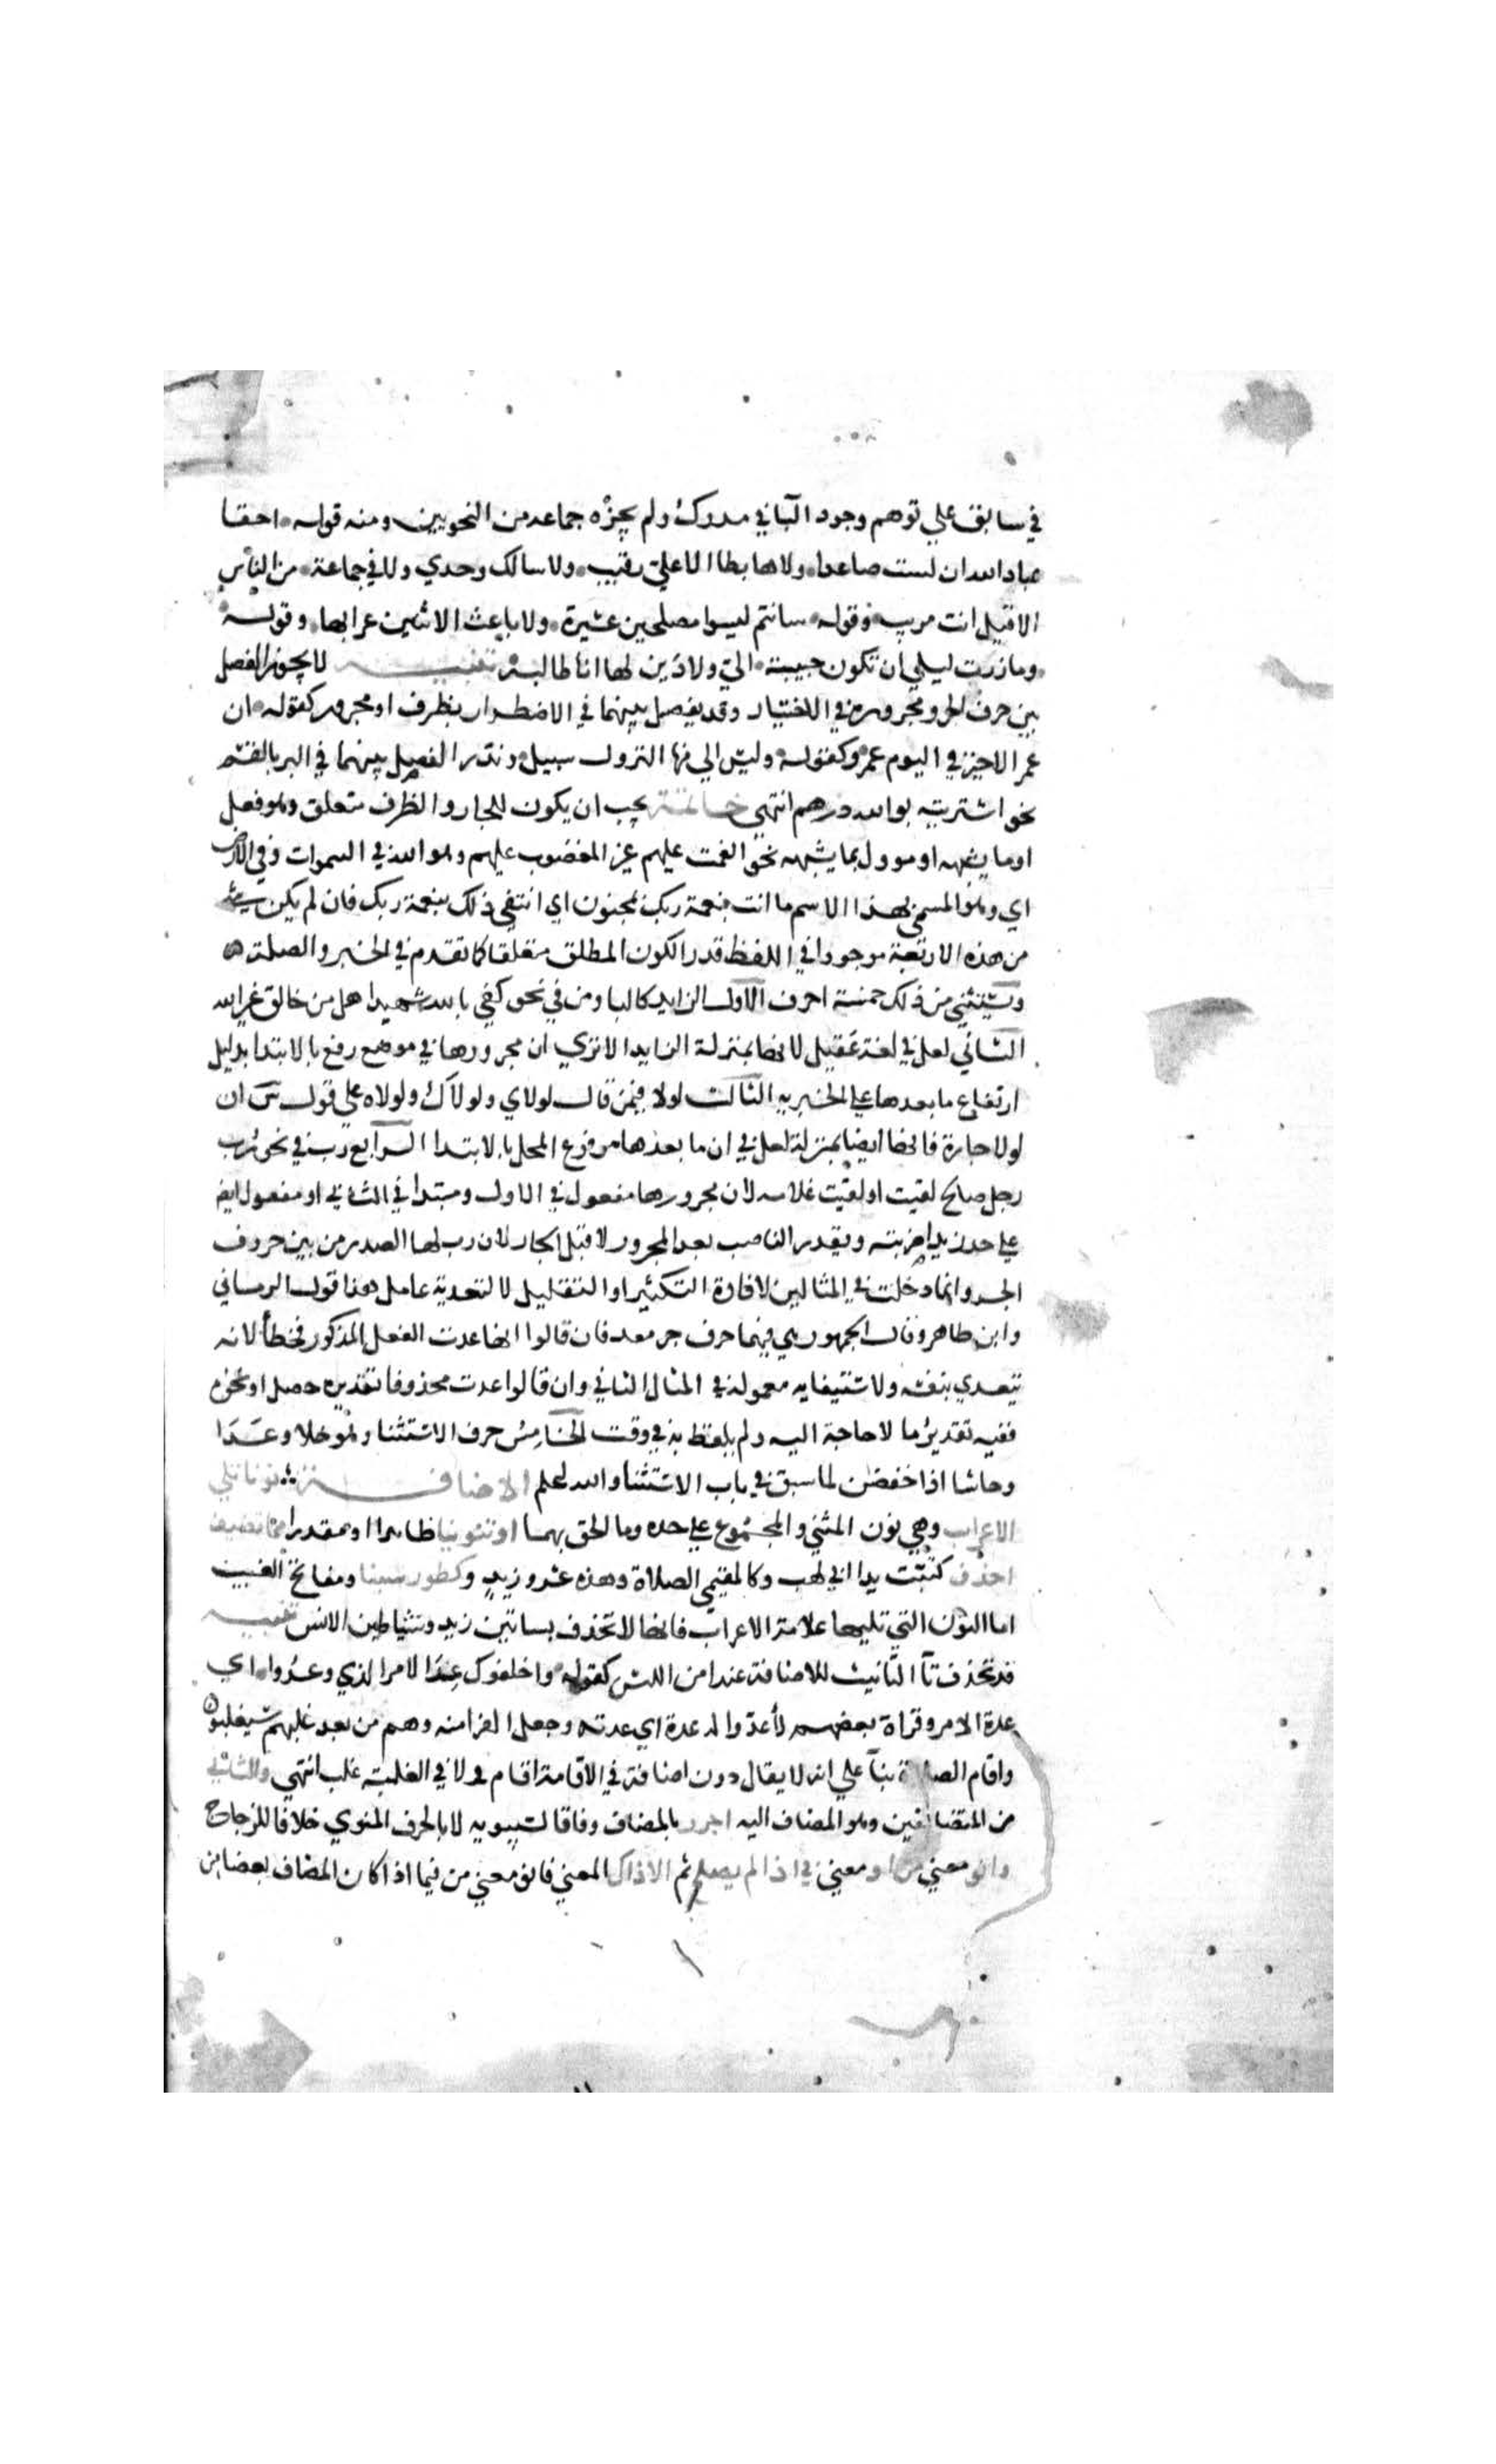 في سابق علي توهم وجود البا في مدرك ولم يجزه جماعه من النحويين ومنه قوله احقا
عباد الله ان لست صاعدا ولا هابطا الا علي رقيب ولا سالك وحدي ولا في جماعة من الناس
الا قيل انت مريب وقوله مسانتم ليسوا مصلحين عشيرة ولا باعث الا ثنين عرابها وقوله
وما زرت ليلي ان تكون حبيبة الي ولا دين لها انا طالبه تنبيه لا يجوز الفصل
بين حرف الجر ومجروره في الاختيار وقد يفصل بينهما في الاضطرار بظرف او مجرور كقوله ان
عمرا لا خير في اليوم عمرو وكقوله وليس الي منها النزول سبيل وندر الفصل بينهما في النثر بالقسم
نحو اشتريته بوالله درهم انتهي خاتمة يجب ان يكون للجار والظرف متعلق وهو فعل
او ما يشبهه او موول بما يشبهه نحو انعمت عليهم غير المغضوب عليهم وهو الله في السموات وفي الارض
اي وهو المسمي بهذا الاسم ما انت بنعمة ربك بمجنون اي انتفي ذلك بنعمة ربك فان لم يكن شي
من هذه الاربعة موجودا في اللفظ قدر الكون المطلق متعلقا كما تقدم في الخبر والصلة
ويستثني من ذلك خمسة احرف الاول الزايد كالبا ومن في نحو كفي بالله شهيدا هل من خالق غير الله
الثاني لعل في لغة عقيل لانها بمنزلة الزايد الا تري ان مجرورها في موضع رفع بالابتدا بدليل
ارتفاع ما بعدها علي الخبرية الثالث لولا فيمن قال لولاي ولولاك ولولاه علي قول س ان
لولا جارة فانها ايضا بمنزلة لعل في ان ما بعدها مرفوع المحل بالابتدا الرابع رب في نحو رب
رجل صالح لقيت او لقيت غلامه لان مجرورها مفعول في الاول ومبتدا في الثاني او مفعول ايضا
علي حد زيدا ضربته ويقدر الناصب بعد المجرور لا قبل الجار لان رب لها الصدر من بين حروف
الجر وانما دخلت في المثالين لافادة التكثير او التقليل لا لتعدية عامل هذا قول الرماني
وابن طاهر وقال الجمهور هي فيهما حرف جر معد فان قالوا انها عدت الفعل المذكور فخطأ لانه
يتعدي بنفسه ولاستيفايه معموله في المثال الثاني وان قالوا عدت محذوفا تقديره حصل او نحوه
ففيه تقدير ما لا حاجة اليه ولم يلفظ به في وقت الخامس حرف الاستثنا وهو خلا وعدا
وحاشا اذا خفضن لما سبق في باب الاستثنا والله اعلم الاضافة نونا تلي
الاعراب وهي نون المثني والمجموع علي حده وما الحق بهما او تنوينا ظاهرا او مقدرا مما تضيف
احذف كتبت يدا ابي لهب وكالمقيمي الصلاة وهذه عشرو زيد وكطور سينا ومفاتح الغيب
اما النون التي تليها علامة الاعراب فانها لا تحذف بساتين زيد وشياطين الانس تنبيه
قد تحذف تا التانيث للاضافة عند امن اللبس كقوله واخلفوك عدا الامر الذي وعدوا اي
عدة الامر وقراة بعضهم لأعدوا له عدة اي عدته وجعل الفرا منه وهم من بعد غلبهم سيغلبون
واقام الصلاة بنا علي انه لا يقال دون اضافة في الاقامة اقام ولا في الغلبة غلب انتهي والثاني
من المتضايفين وهو المضاف اليه اجرر بالمضاف وفاقا لسيبويه لا بالحرف المنوي خلافا للزجاج
وانو معني من او معني في اذا لم يصلح ثم الا ذاك المعني فانو معني من فيما اذا كان المضاف بعضا من